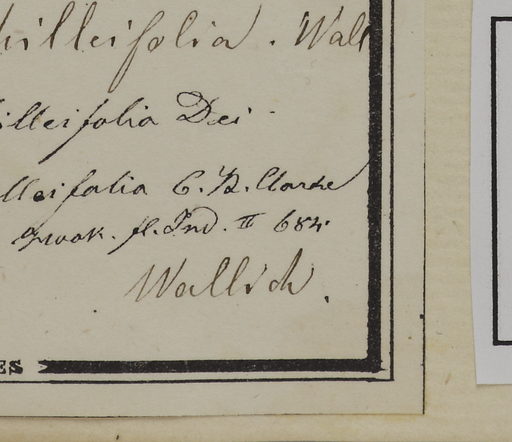 hilleifolia . Wall
illeifolia Dei
lleifolia C. B. Clarke
Hook. fl. Ind. II 684.
Wallich.
ES